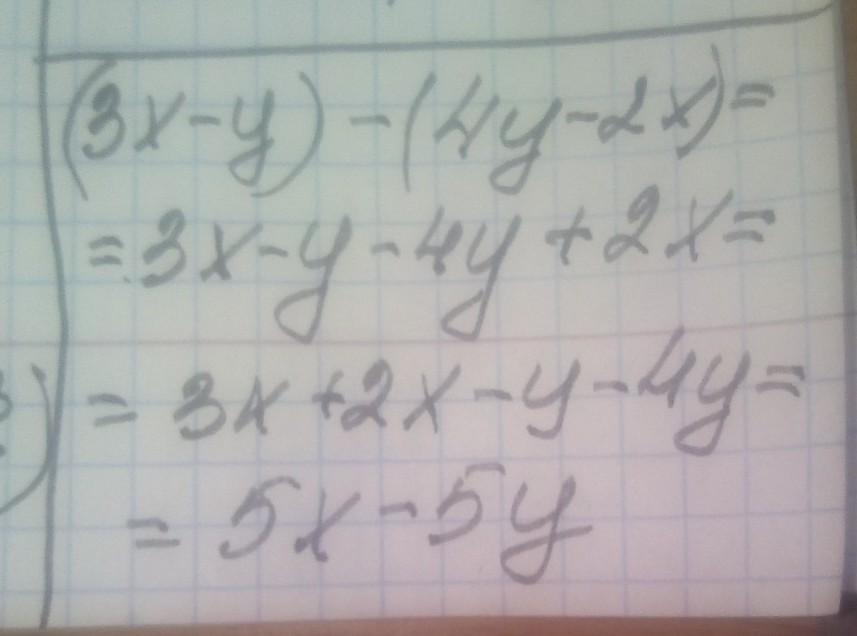 (3x-y)-(4y-2x)=
=3x-y-4y+2x=
=3x+2x-y-4y=
=5x-5y